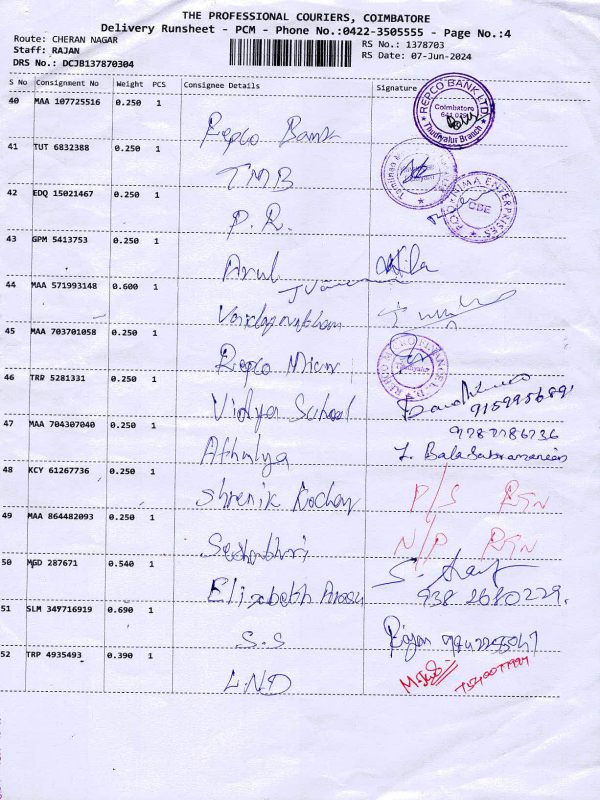 THE PROFESSIONAL COURIERS, COIMBATORE
Delivery Runsheet - PCM - Phone No.:0422-3505555 - Page No.:4
Route: CHERAN NAGAR
Staff: RAJAN
DRS No.: DCJB137870304
RS No.: 1378703
RS Date: 07-Jun-2024
S No Consignment No Weight PCS Consignee Details Signature
40 MAA 107725516 0.250 1
Repco Bank
REPCO BANK LTD Coimbatore Thudiyalur Branch
41 TUT 6832388 0.250 1
TMB
42 EDQ 15021467 0.250 1
P.R.
ENTERPRISES CBE
43 GPM 5413753 0.250 1
Arul
44 MAA 571993148 0.600 1
45 MAA 703701058 0.250 1
Repco Micro
Thudiyalur
46 TRP 5281331 0.250 1
Vidya School
9159956891
47 MAA 704307040 0.250 1
Athulya
9787786736
L. Balasubramanian
48 KCY 61267736 0.250 1
Shrenik Kochar
P/S RTN
49 MAA 864482093 0.250 1
N/P RTN
50 MGD 287671 0.540 1
Elizabeth Arasu
938 2680229.
51 SLM 349716919 0.690 1
S.S
52 TRP 4935493 0.390 1
L.N.D